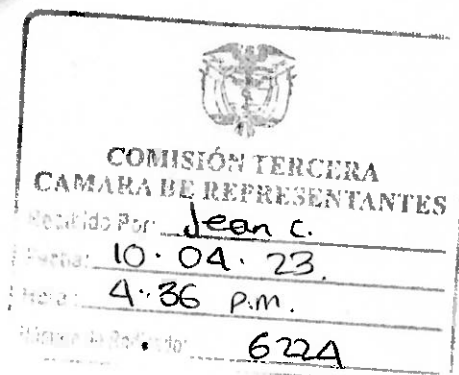 COMISIÓN TERCERA
CAMARA DE REPRESENTANTES
Recibido Por: Jean C.
Fecha: 10.04.23.
Hora: 4:36 p.m.
Número de Radicado: 622A